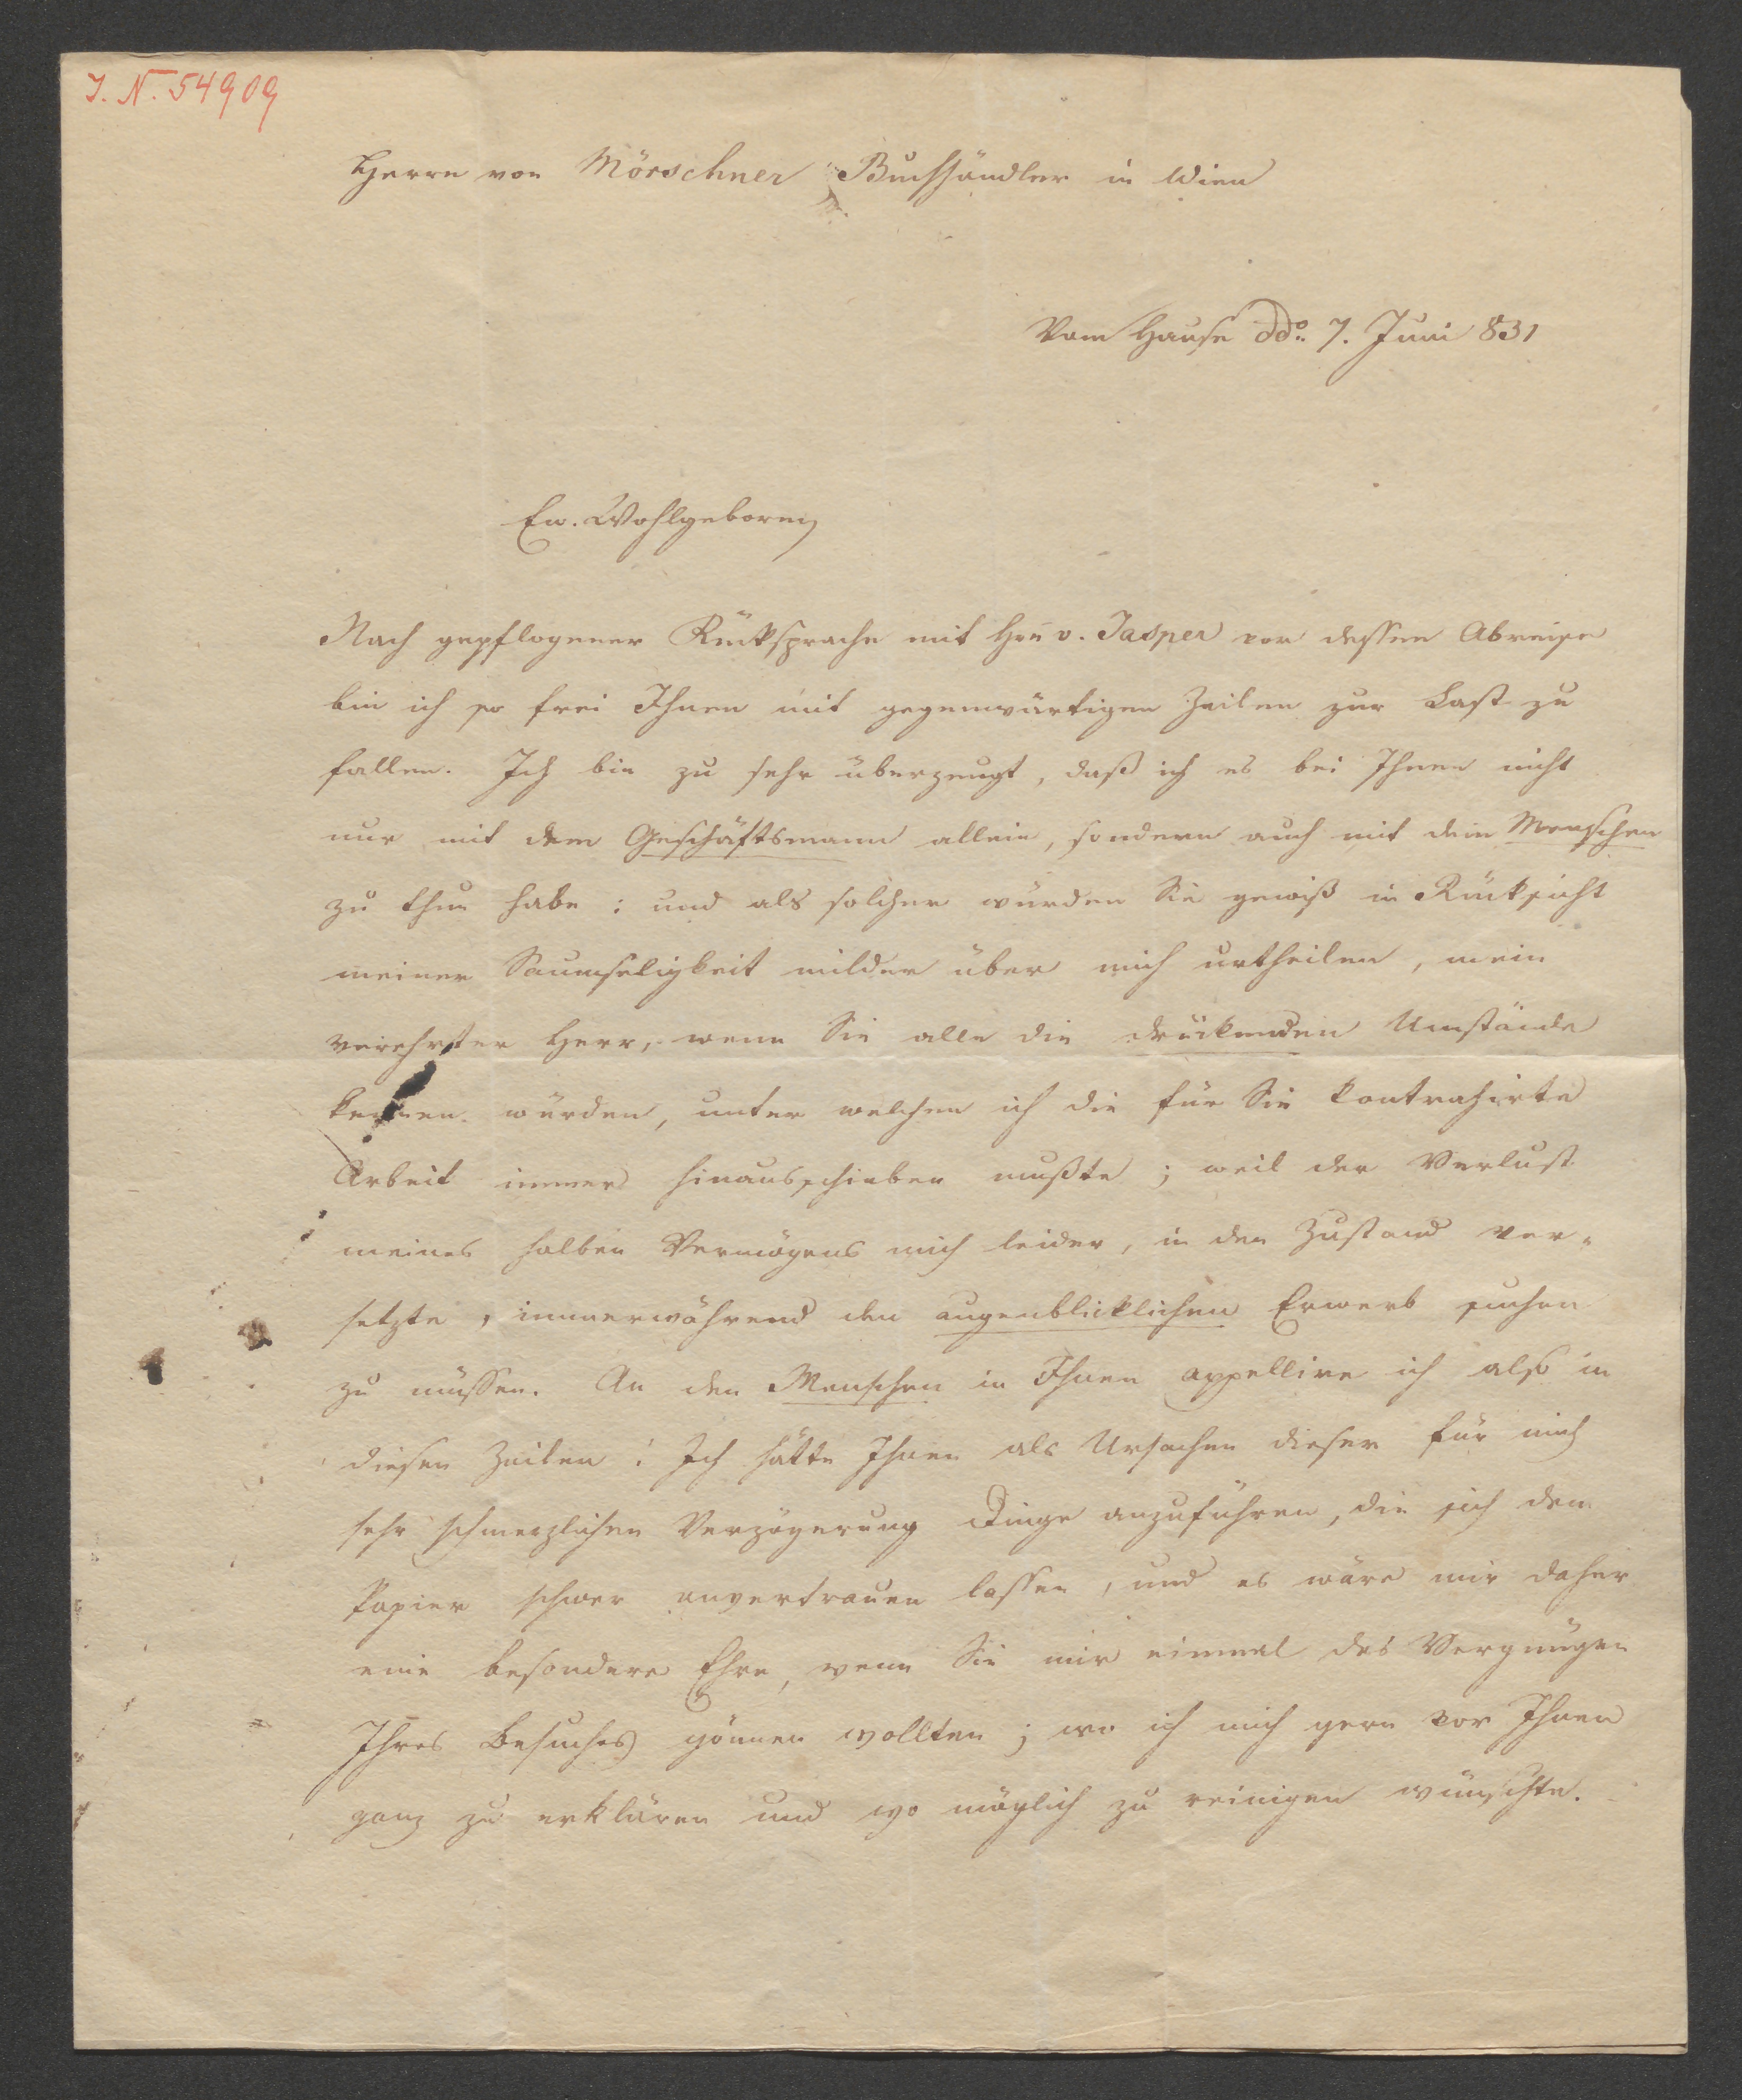 I. N. 54909
Herrn von Mörschner Buchhändler in Wien
Vom Hause ddo. 7. Juni 831
Ew. Wohlgeboren
Nach gepflogener Rücksprache mit Hrn v. Jasper vor dessen Abreise
bin ich so frei Ihnen mit gegenwärtigen Zeilen zur Last zu
fallen. Ich bin zu sehr überzeugt, daß ich es bei Ihnen nicht
nur mit dem Geschäftsmann allein, sondern auch mit dem Menschen
zu thun habe: und als solcher würden Sie gewiß in Rücksicht
meiner Saumseligkeit milder über mich urtheilen, mein
verehrter Herr, wenn Sie alle die drückenden Umstände
kennen würden, unter welchen ich die für Sie kontrahirte
Arbeit immer hinausschieben mußte; weil der Verlust
meines halben Vermögens mich leider, in den Zustand ver-
setzte, immerwährend den augenblicklichen Erwerb suchen
zu müssen. An den Menschen in Ihnen appellire ich also in
diesen Zeilen: Ich hätte Ihnen als Ursachen dieser für mich
sehr schmerzlichen Verzögerung Dinge anzuführen, die sich dem
Papier schwer anvertrauen lassen, und es wäre mir daher
eine besondere Ehre, wenn Sie mir einmal das Vergnügen
Ihres Besuches gönnen wollten; wo ich mich gern vor Ihnen
ganz zu erklären und wo möglich zu reinigen wünschte.